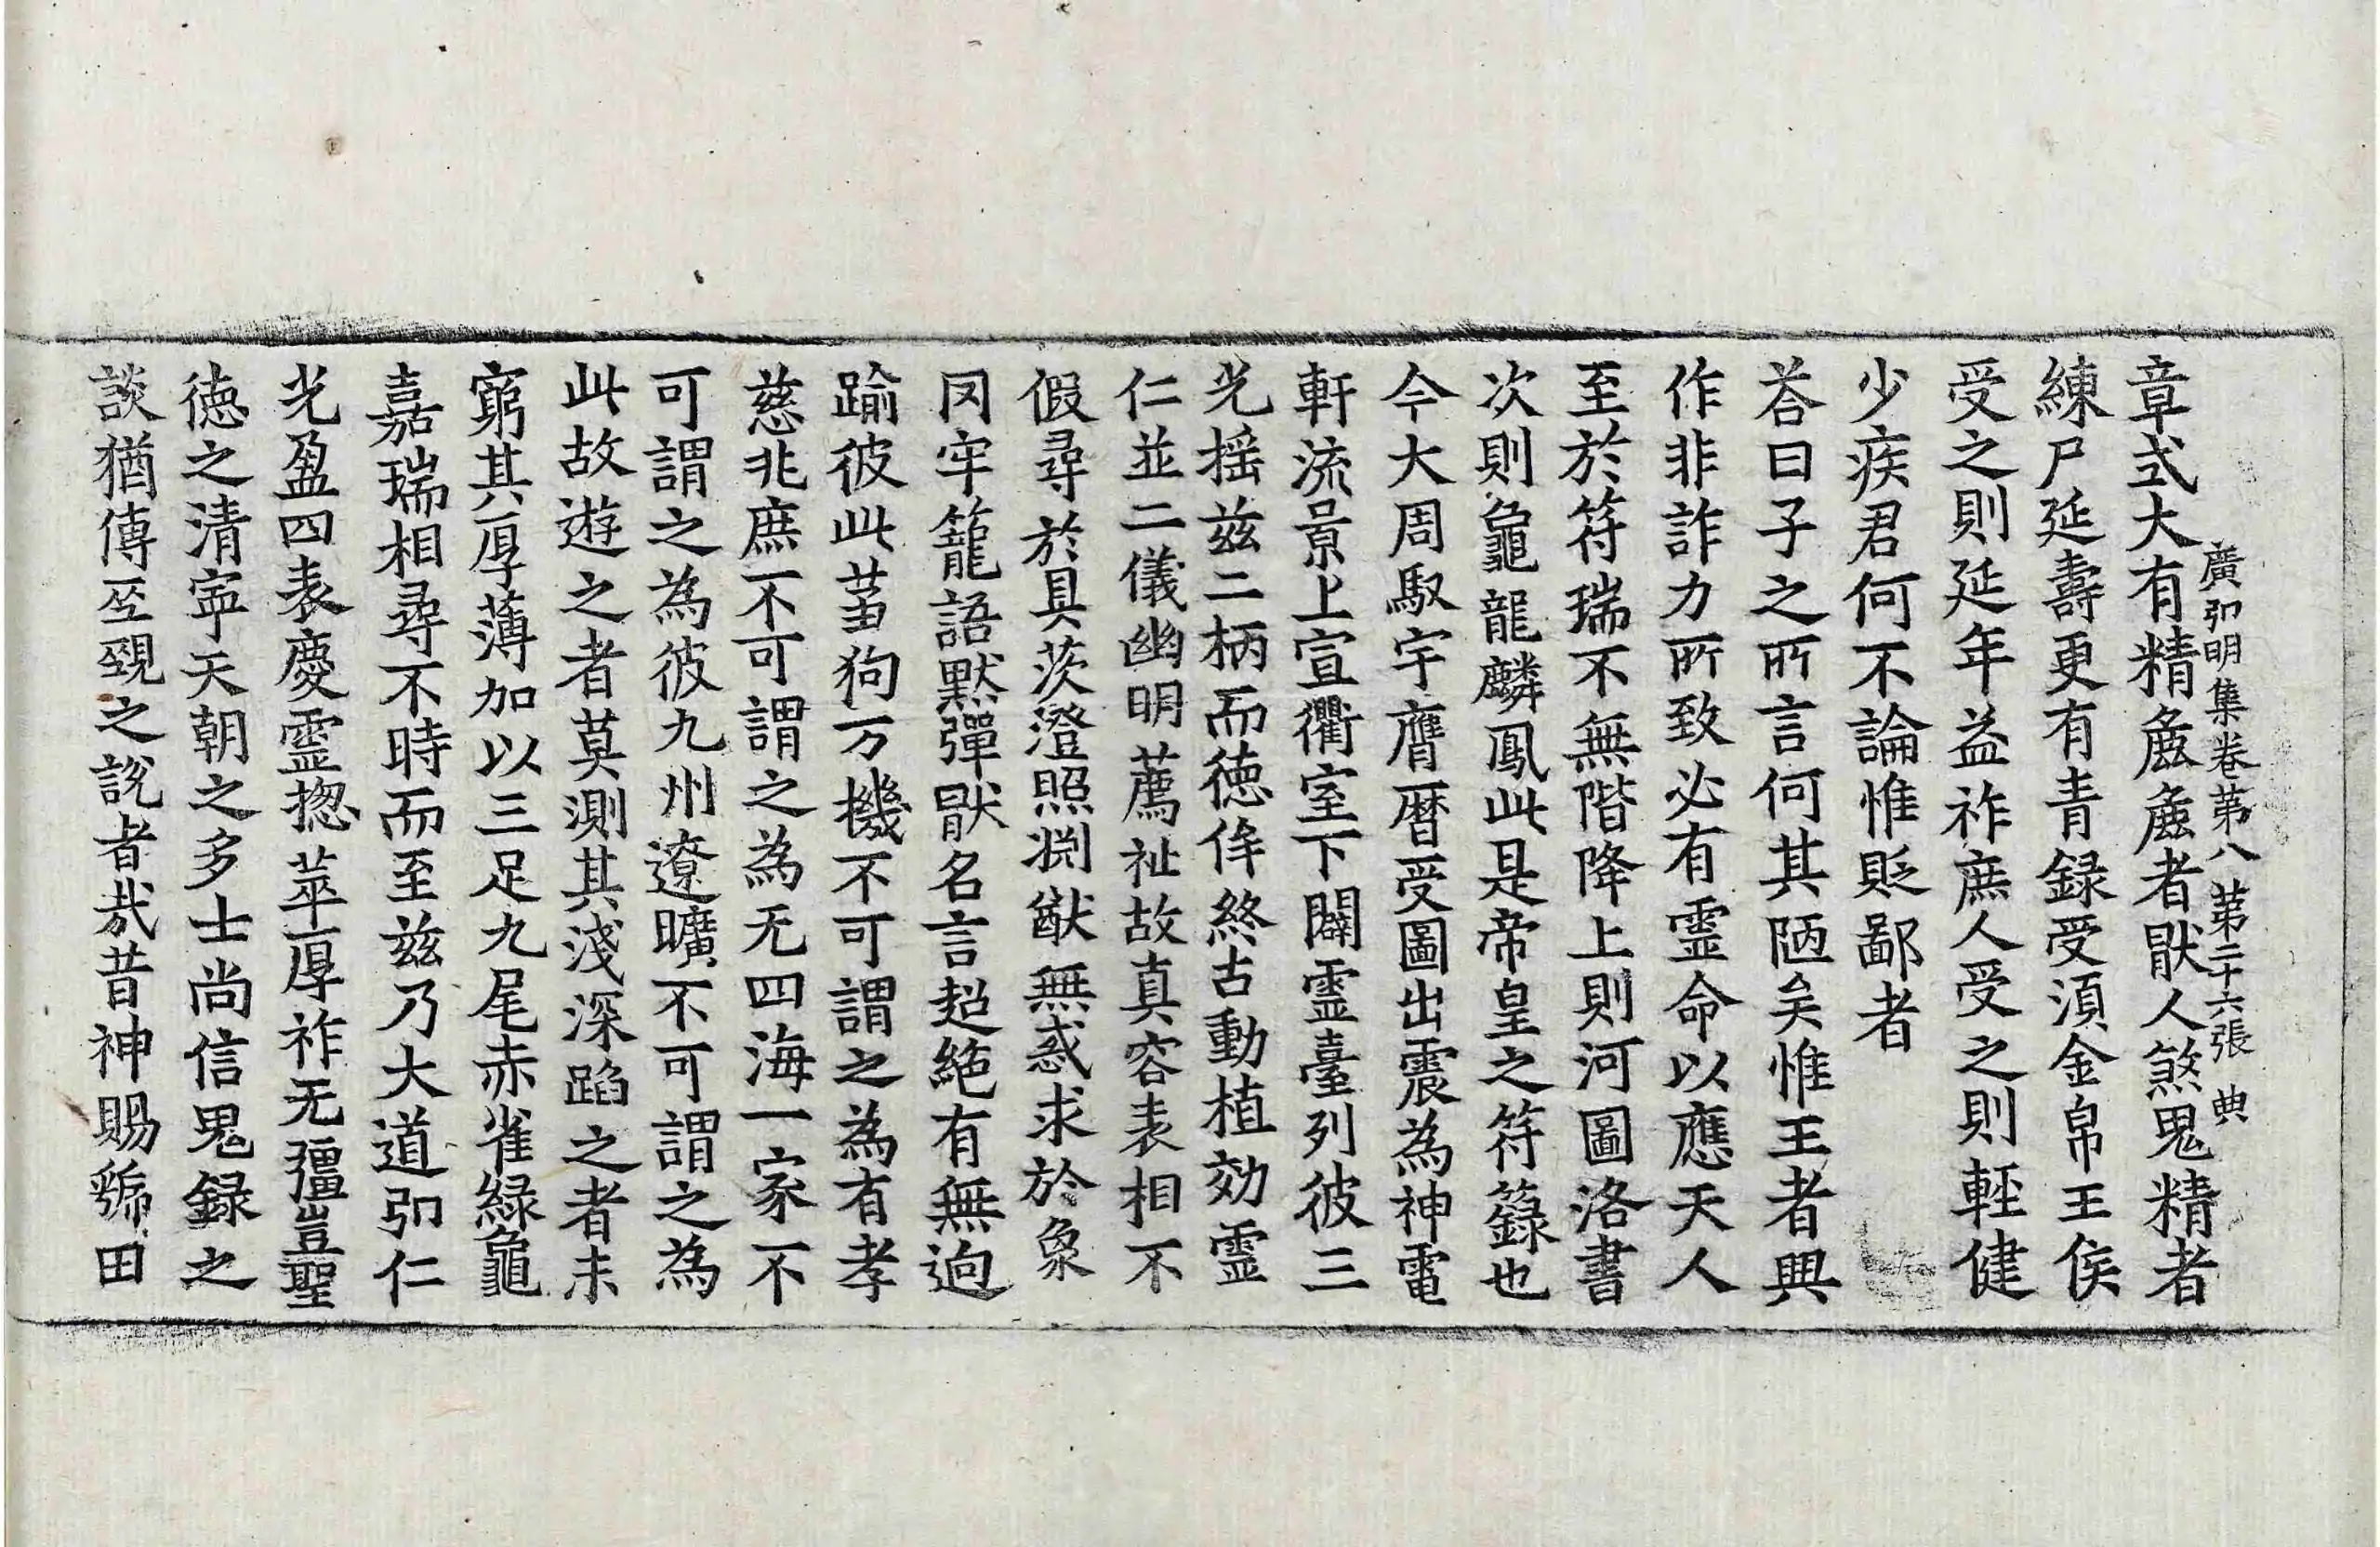 廣弘明集卷第八 第二十六張 典
章式大有精麁麁者猒人煞鬼精者
練尸延壽更有青録受湏金帛王侯
受之則延年益祚庶人受之則輕健
少疾君何不論惟貶鄙者
荅曰子之所言何其陋矣惟王者興
作非詐力所致必有靈命以應天人
至於符瑞不無階降上則河圖洛書
次則龜龍麟鳳此是帝皇之符籙也
今大周馭宇膺曆受圖出震為神電
軒流景上宣衢室下闢靈臺列彼三
光揺兹二柄而德侔終古動植効靈
仁並二儀幽明薦祉故真容表相不
假尋於具茨澄照渕猷無惑求於象
罔牢籠語默彈猒名言超絶有無逈
踰彼此蒭狗万機不可謂之為有孝
慈兆庶不可謂之為无四海一家不
可謂之為彼九州遼曠不可謂之為
此故遊之者莫測其淺深蹈之者未
窮其厚薄加以三足九尾赤雀緑龜
嘉瑞相尋不時而至兹乃大道弘仁
光盈四表慶靈揔萃厚祚无彊豈聖
德之清寜天朝之多士尚信鬼録之
談猶傳巫覡之說者㦲昔神賜虢田